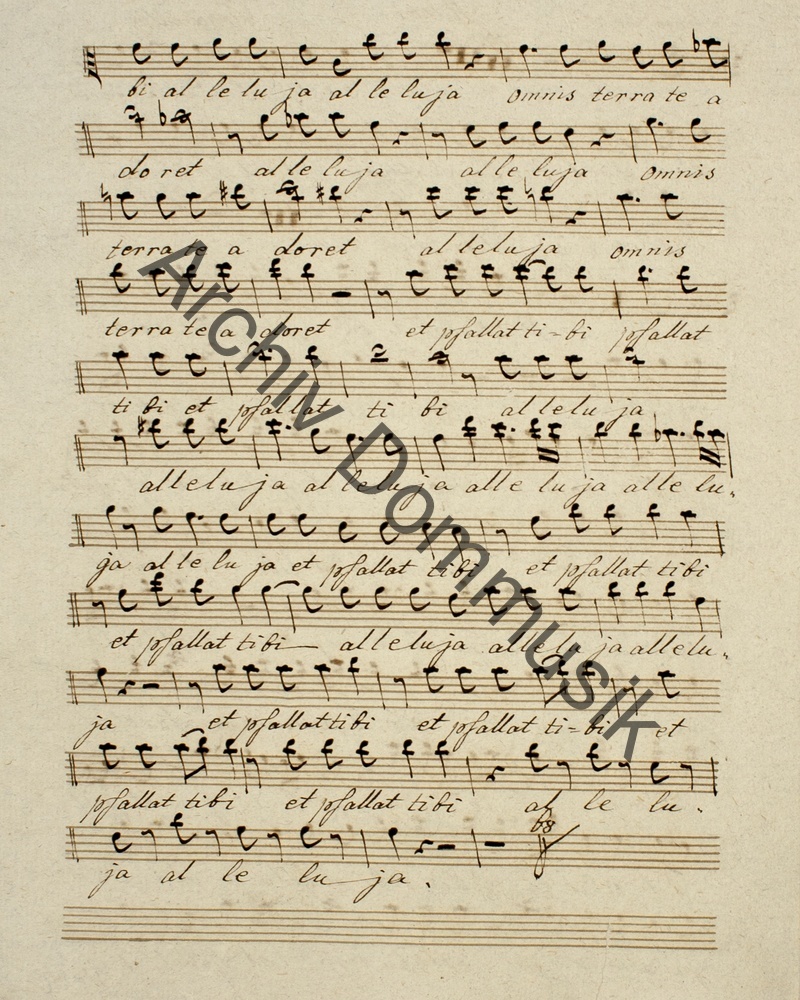 bi al le lu ja al le lu ja omnis terra te a
do ret al le lu ja al le lu ja omnis
terra te a doret al le lu ja omnis
terra te a doret et psallat ti=bi psallat
ti bi et psallat ti bi al le lu ja
al le lu ja al le lu ja al le lu ja al le lu=
ja al le lu ja et psallat tibi et psallat tibi
et psallat tibi al le lu ja al le lu ja al le lu=
ja et psallat tibi et psallat ti=bi et
psallat tibi et psallat tibi al le lu.
ja al le lu ja.
Archiv Dommusik